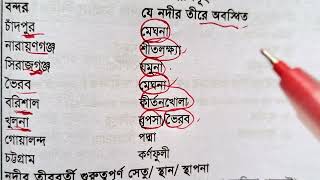 বন্দর যে নদীর তীরে অবস্থিত
চাঁদপুর মেঘনা
নারায়ণগঞ্জ শীতলক্ষ্যা
সিরাজগঞ্জ যমুনা
ভৈরব মেঘনা
বরিশাল কীর্তনখোলা
খুলনা রূপসা/ভৈরব
গোয়ালন্দ পদ্মা
চট্টগ্রাম কর্ণফুলী
নদীর তীরবর্তী গুরুত্বপূর্ণ সেতু/ স্থান/ স্থাপনা